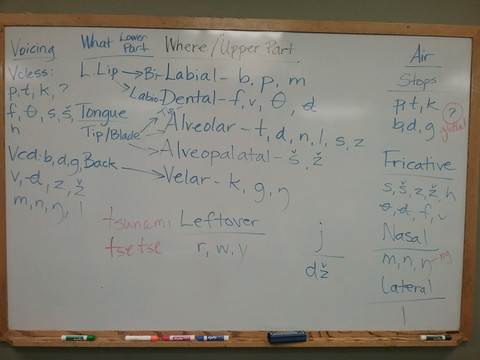 Voicing
Vcless:
p, t, k, ?
f, θ, s, š,
h
Vcd: b, d, g,
v, đ, z, ž
m, n, ŋ, l
What Lower Part
L. Lip → Bi-
Labio-
Tongue
Tip/Blade
Back
Where/Upper Part
Labial - b, p, m
Dental - f, v, θ, đ
Alveolar - t, d, n, l, s, z
Alveopalatal - š, ž
Velar - k, g, ŋ
tsunami
tsetse
Leftover
r, w, y
j
dž
Air
Stops
p, t, k
b, d, g
? glottal
Fricative
s, š, z, ž, h
θ, đ, f, v
Nasal
m, n, ŋ - ng
Lateral
l